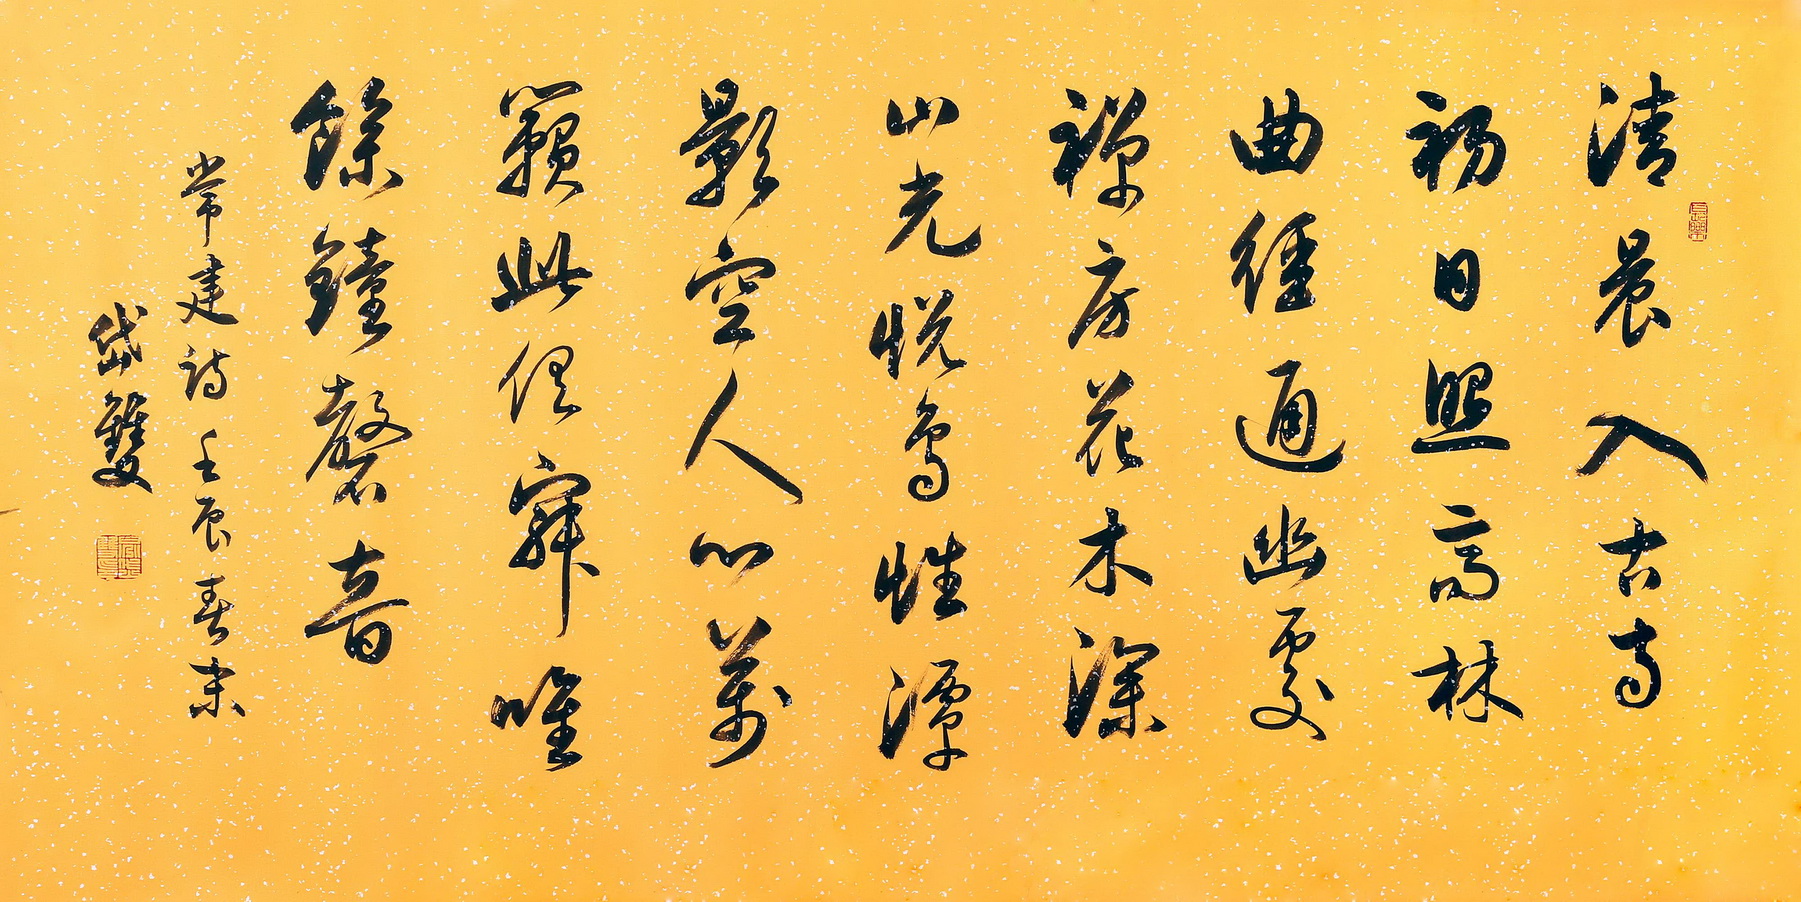 清晨入古寺
初日照高林
曲徑通幽處
禪房花木深
山光悅鳥性潭
影空人心萬
籟此俱寂唯
餘鐘磬音
常建詩壬辰春末
岱雙